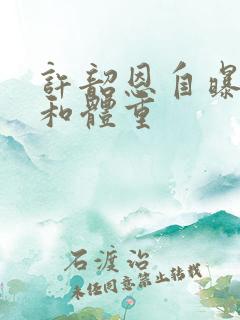 許韶恩自曝
和體重
石渡治
未经同意禁止转载